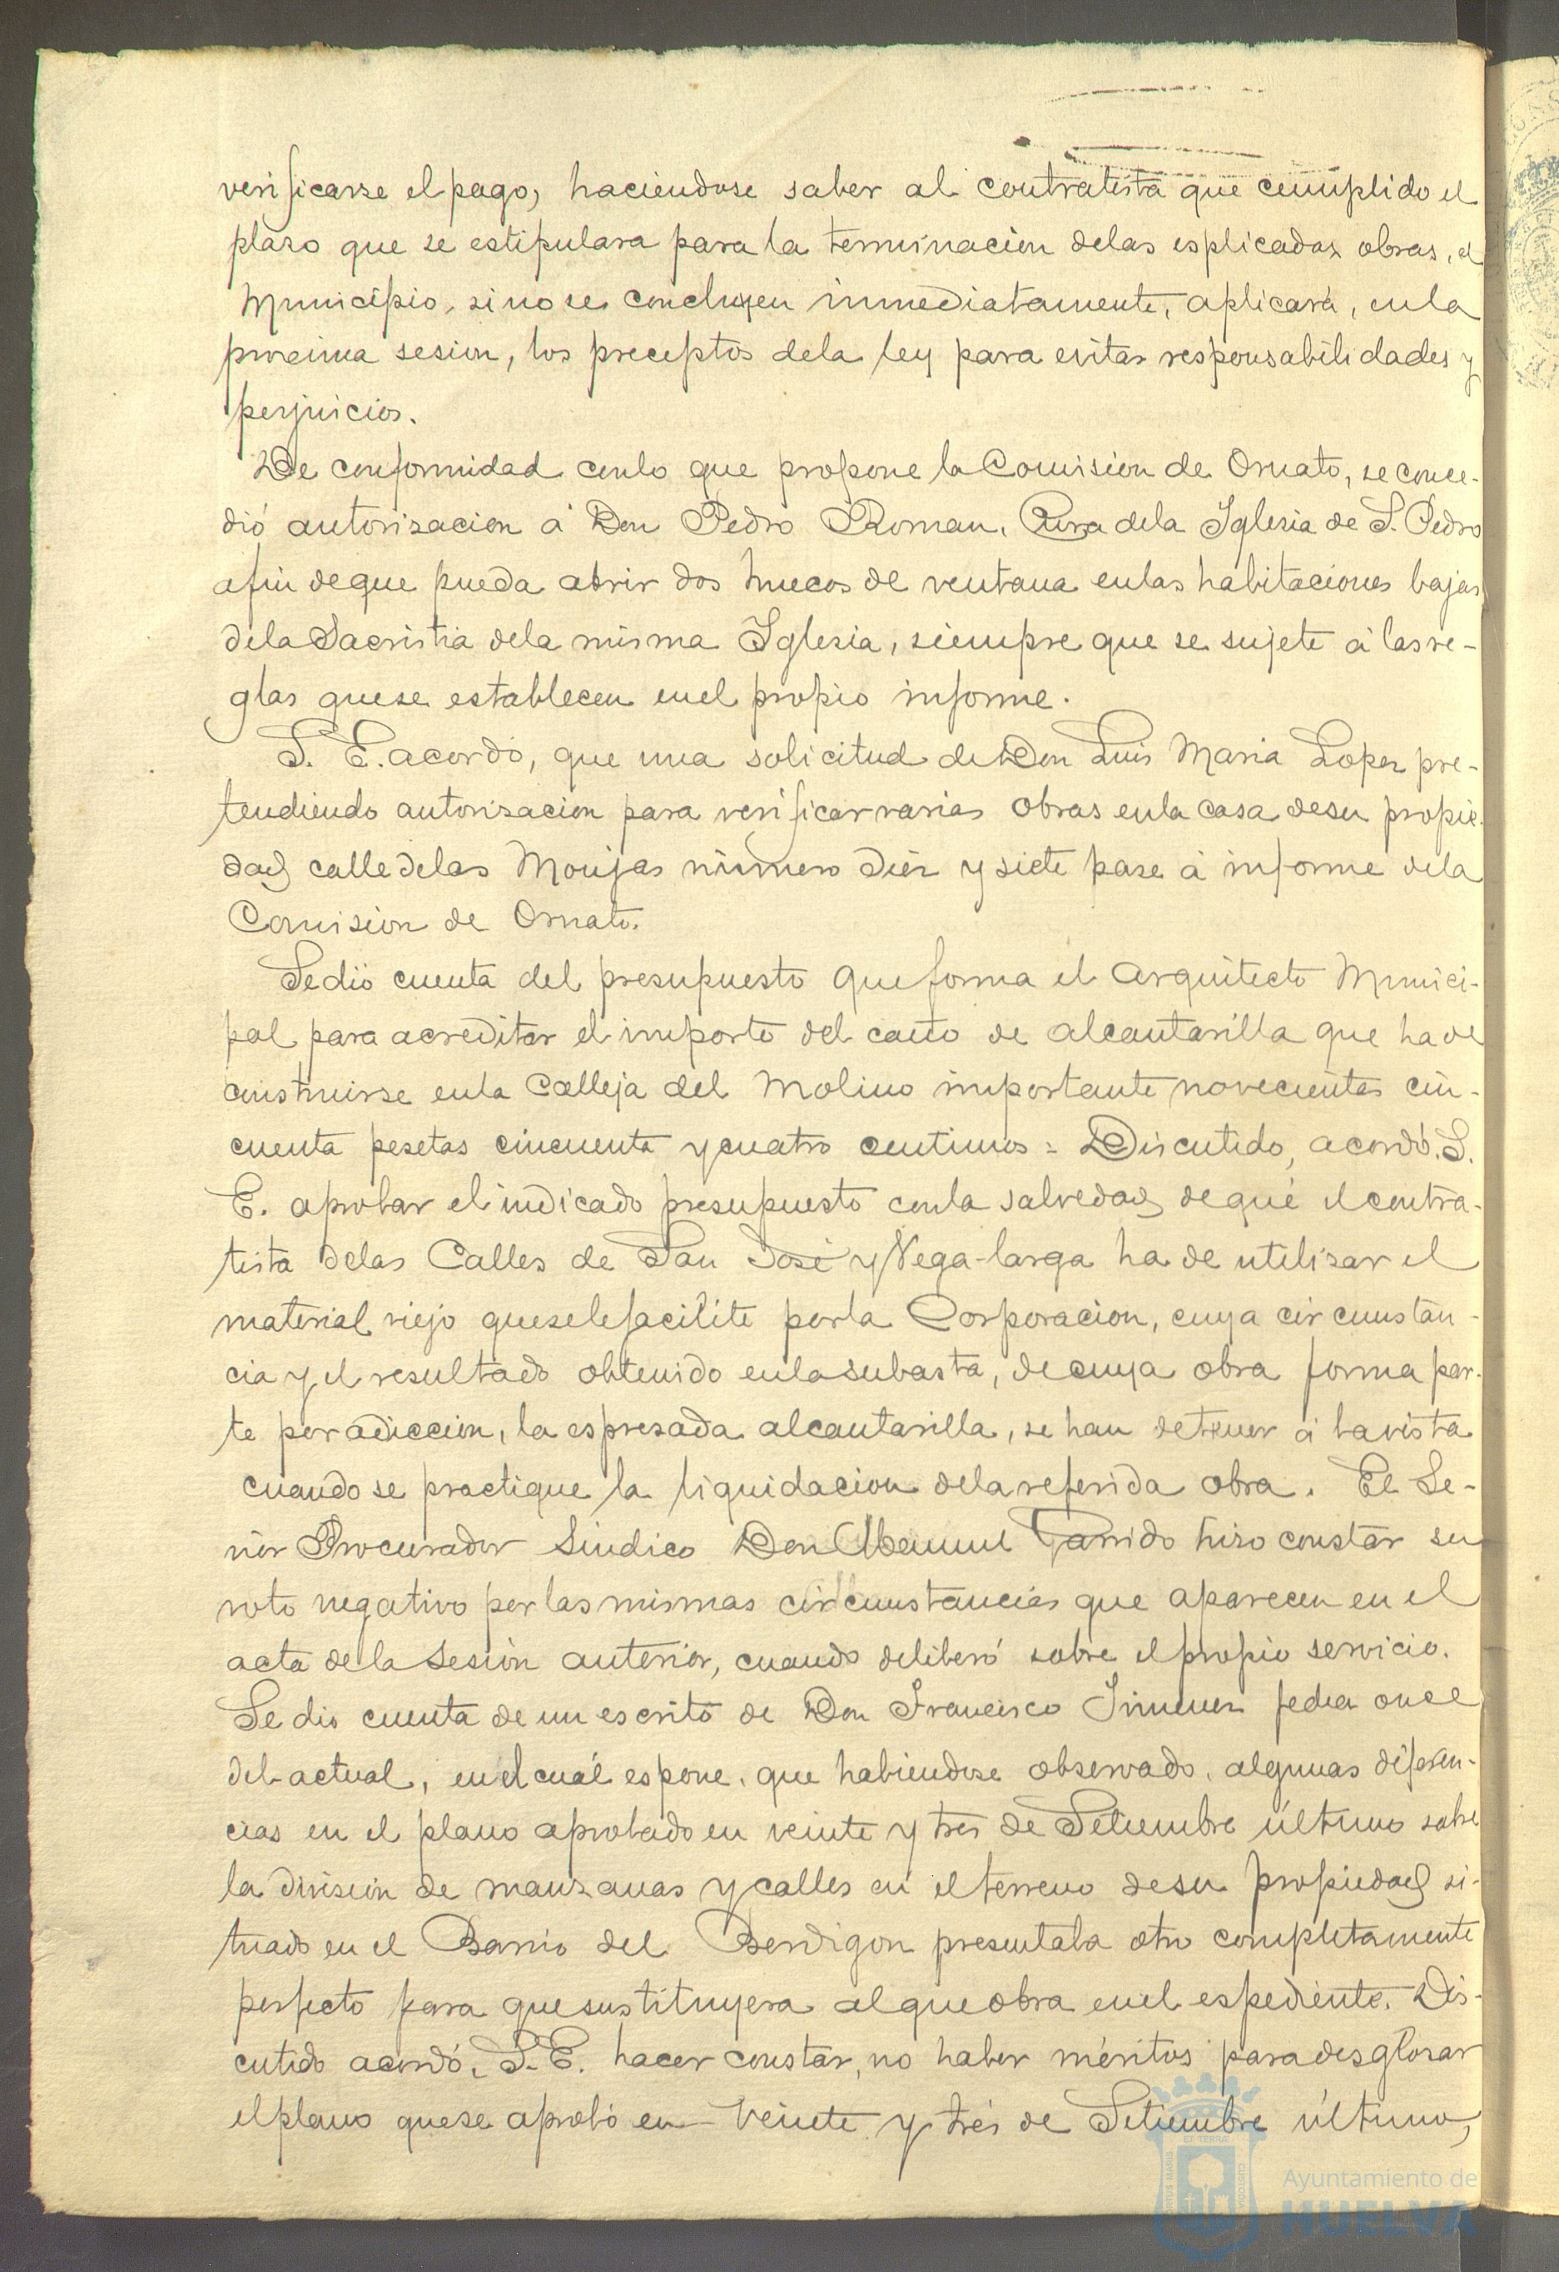 verificarse el pago, haciendose saber al contratista que cumplido el
plazo que se estipulara para la terminacion delas esplicadas obras, el
Municipio, si no se concluyen inmediatamente, aplicará, en la
procsima sesion, los preceptos dela ley para evitar responsabilidades y
perjuicios.
De conformidad conlo que propone la Comision de Ornato, se conce-
dió autorizacion á Don Pedro Roman, Cura dela Iglesia de S. Pedro
afin de que pueda abrir dos huecos de ventana enlas habitaciones bajas
dela Sacristia dela misma Iglesia, siempre que se sujete á las re-
glas quese establecen enel propio informe.
S. E. acordó, que una solicitud de Don Luis Maria Lopez pre-
tendiendo autorizacion para verificar varias obras enla casa desu propie-
dad calle delas Monjas número diez y siete pase á informe dela
Comision de Ornato.
Se dió cuenta del presupuesto que forma el Arquitecto Munici-
pal para acreditar el importe del caño de alcantarilla que ha de
construirse enla Calleja del Molino importante novecientas cin-
cuenta pesetas cincuenta y cuatro centimos = Discutido, acordó. S.
E. aprobar el indicado presupuesto conla salvedad de qué el contra-
tista delas Calles de San José y Vega-larga ha de utilizar el
material viejo quesele facilite porla Corporacion, cuya circunstan-
cia y el resultado obtenido enla subasta, de cuya obra forma par-
te por adiccion, la espresada alcantarilla, se han de tener á la vista
cuando se practique la liquidacion dela referida obra. El Se-
ñor Procurador Sindico Don Manuel Garrido hizo constar su
voto negativo por las mismas circunstancias que aparecen en el
acta de la Sesion anterior, cuando deliberó sobre el propio servicio.
Se dio cuenta de un escrito de Don Francisco Jimenez fecha once
del actual, en el cual espone, que habiendose observado, algunas diferen-
cias en el plano aprobado en veinte y tres de Setiembre último sobre
la division de manzanas y calles en el terreno desu propiedad si-
tuado en el Barrio del Berdigon presentaba otro completamente
perfecto para que sustituyera al que obra enel espediente. Dis-
cutido acordó, S. E. hacer constar, no haber méritos para desglosar
el plano quese aprobó en veinte y trés de Setiembre último,
Ayuntamiento de
HUELVA